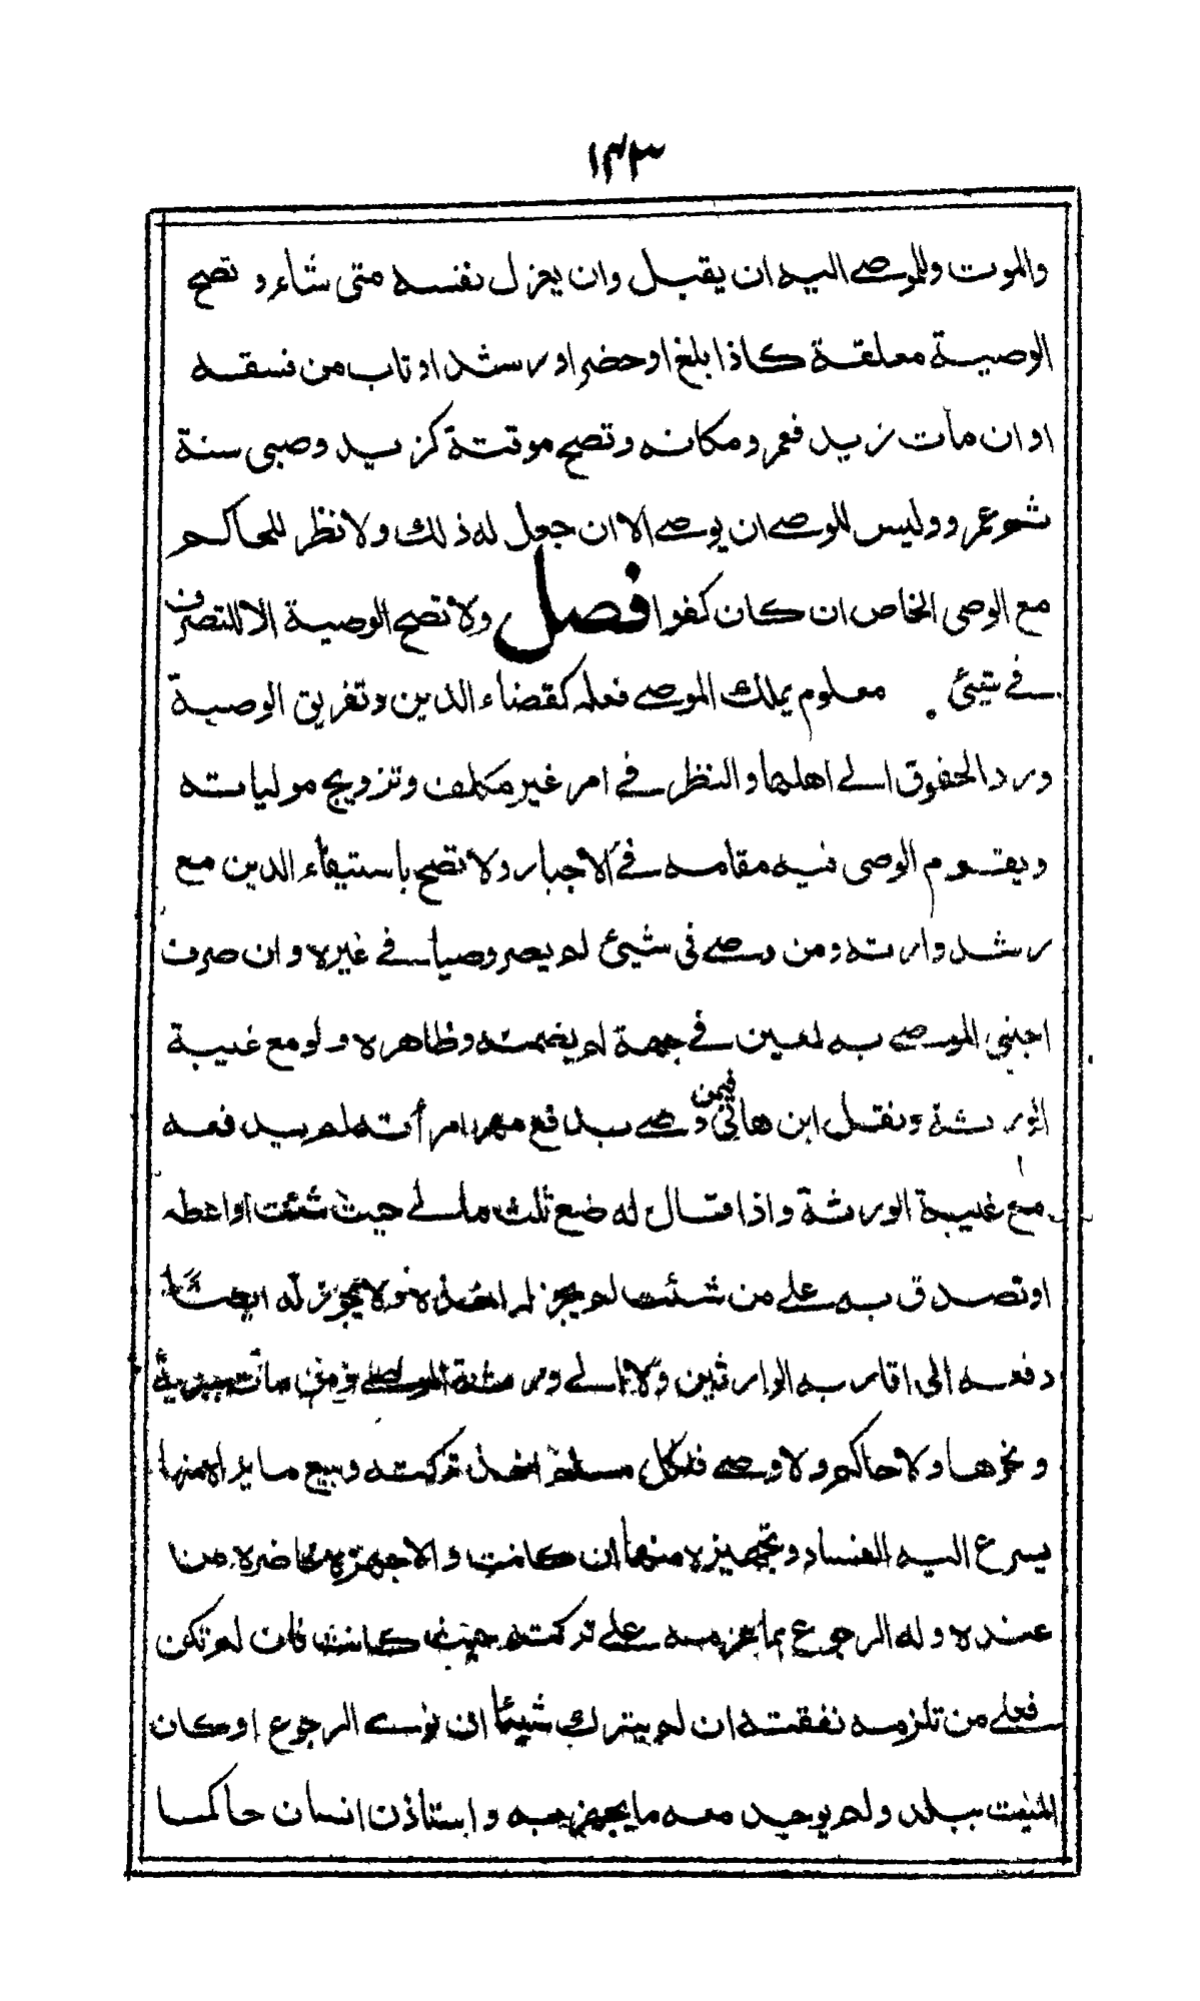 ١٣٣
والموت وللموصى اليه ان يقبل وان يعزل نفسه متى شاء و تصح
الوصية معلقة كاذا بلغ او حضر او رشد او تاب من فسقه
او ان مات زيد فعمرو مكانه وتصح موقتة كزيد وصيى سنة
ثم عمرو وليس للوصى ان يوصى الا ان جعل له ذلك ولا نظر للحاكم
مع الوصى الخاص ان كان كفوا فصل ولا تصح الوصية الا للتصرف
فى شيئ معلوم يملك الموصى فعله كقضاء الدين وتفريق الوصية
ورد الحقوق الى اهلها والنظر فى امر غير مكلف وتزويج مولياته
ويقوم الوصى فيه مقامه فى الاجبار ولا تصح باستيفاء الدين مع
رشد وارثه ومن وصى فى شيئ لم يصر وصيا فى غيره وان صرف
اجنبى الموصى به لمعين فى جهة لم يضمنه وظاهره ولو مع غيبة
الورثة ونقل ابن هانئ فيمن وصى بدفع مهر امرأته لم يدفعه
مع غيبة الورثة واذا قال له ضع ثلث مالى حيث شئت او اعطه
او تصدق به على من شئت لم يجز له اخذه ولا يجوز له ايضا
دفعه الى اقاربه الوارثين ولا الى ورثة الموصى ومن مات ببرية
ونحوها ولا حاكم ولا وصى فلكل مسلم اخذ تركته وبيع ما يراه منها
يسرع اليه الفساد وتجهيزه منها ان كانت والا جهزه حاضره من
عنده وله الرجوع بما غرمه على تركته حيث كانت فان لم تكن
فعلى من تلزمه نفقته ان لم يترك شيئا ان نوى الرجوع او كان
الميت ببلد ولم يوجد معه ما يجهز به واستاذن انسان حاكما